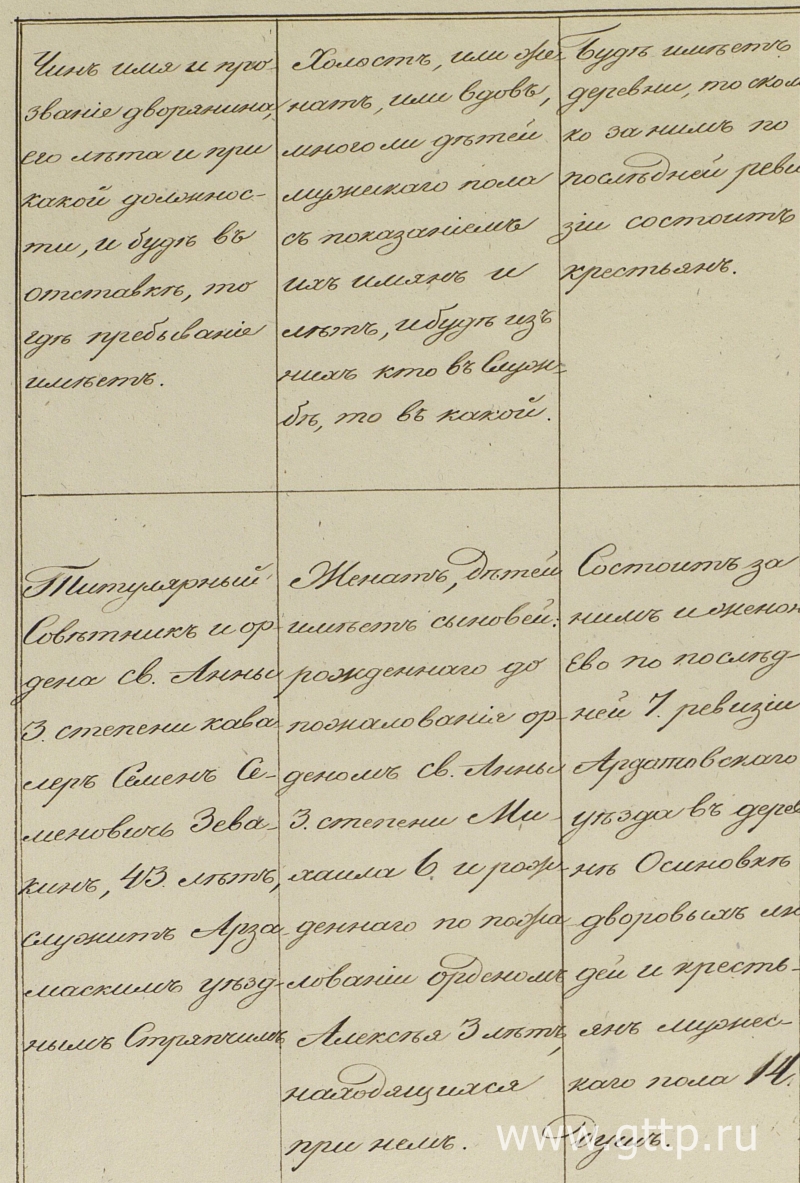 Чинъ имя и про-
званіе дворянина,
его лѣта и при
какой должнос-
ти, и будѣ въ
отставкѣ, то
гдѣ пребываніе
имѣетъ.
Холостъ, или же-
натъ, или вдовъ,
много ли дѣтей
мужескаго пола
съ показаніемъ
ихъ имянъ и
лѣтъ, и будѣ изъ
нихъ кто въ Служ-
бѣ, то въ какой.
Будѣ имѣетъ
деревни, то скол
ко за нимъ по
послѣдней реви
зіи состоитъ
крестьянъ.
Титулярный
Совѣтникъ и ор-
дена св. Анны
3. степени кава-
леръ Семенъ Се-
меновичь Зева-
кинъ, 43. лѣтъ,
служитъ Арза-
маскимъ уѣзд-
нымъ Стряпчимъ
Женатъ, дѣтей
имѣетъ сыновей:
рожденнаго до
пожалованія ор-
деномъ св. Анны
3. степени Ми-
хаила 6. и рож-
деннаго по пожа-
лованіи орденомъ
Алексѣя 3 лѣтъ,
находящихся
при немъ.
Состоитъ за
нимъ и женою
Ево по послѣд-
ней 7. ревизіи
Ардатовскаго
уѣзда въ дерев
нѣ Осиновкѣ
дворовыхъ лю
дей и кресть-
янъ мужес-
каго пола 14.
Душъ.
www.gttp.ru